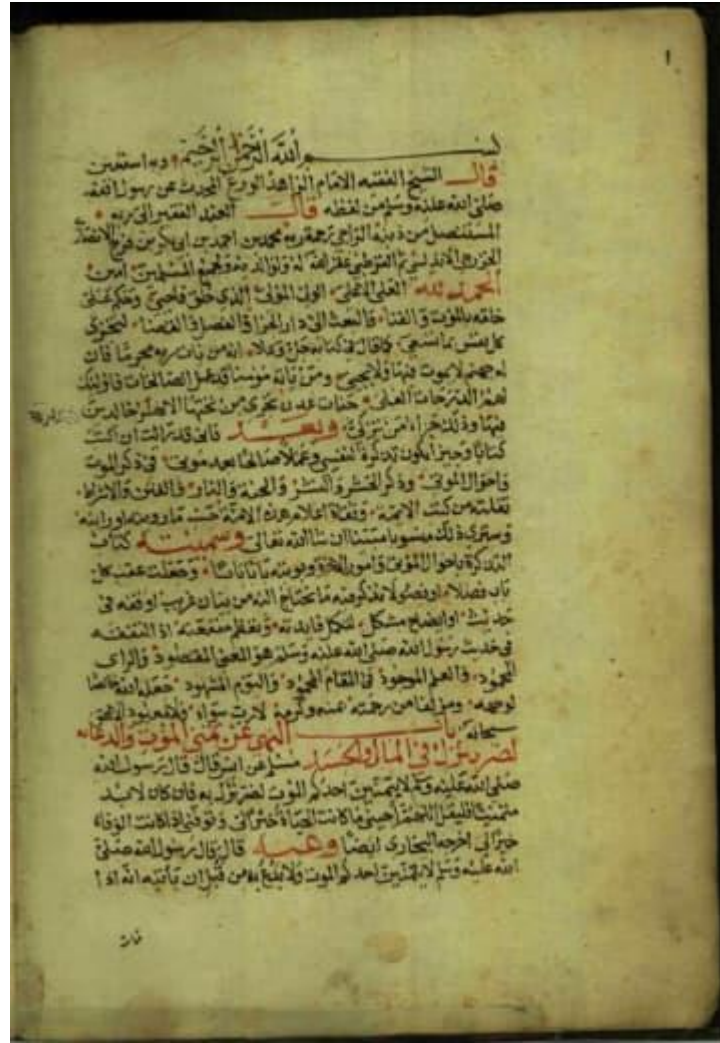 1
بسم الله الرحمن الرحيم وبه استعين
قال الشيخ الفقيه الامام الزاهد الورع المحدث عن رسول الله
صلى الله عليه وسلم من لفظه قال العبد الفقير الى ربه
المستنصل من ذنبه الراجي رحمة ربه محمد بن احمد بن ابي بكر بن فرح الانصاري
الخزرجي الاندلسي ثم القرطبي غفر الله له ولوالديه ولجميع المسلمين امين
الحمد لله العلي الاعلى الولي المولى الذي خلق فاحيى وحكم على
خلقه بالموت والفنا والبعث الى دار الجزا والفصل والقضا لتجزى
كل نفس بما تسعى كما قال في كتابه جل وعلا انه من يات ربه مجرما فان
له جهنم لا يموت فيها ولا يحيى ومن ياته مومنا قد عمل الصالحات فاوليك
لهم الدرجات العلى جنات عدن تجري من تحتها الانهار خالدين
فيها وذلك جزاء من تزكى وبعد فاني قد رايت ان اكتب
كتابا وجيزا يكون تذكرة لنفسي وعملا صالحا بعد موتي في ذكر الموت
واحوال الموتى وذكر الحشر والنشر والجنة والنار والفتن والاشراط
نقلته من كتب الايمة وثقاة اعلام هذه الامة حسب ما رويته او رايته
وسترى ذلك منسوبا مبينا ان شا الله تعالى وسميته كتاب
التذكرة باحوال الموتى وامور الاخرة وبوبته بابا بابا وجعلت عقب كل
باب فصلا او فصولا نذكر فيه ما يحتاج اليه من بيان غريب او فقه في
حديث او ايضاح مشكل لتكمل فايدته وتعظم منفعته اذ التفقه
في حديث رسول الله صلى الله عليه وسلم هو المعنى المقصود والراي
المحمود والعلم الموجود في المقام المحمود واليوم المشهود جعله الله خالصا
لوجهه ومزلفا من رحمته بمنه وكرمه لا رب سواه ولا معبود الا هو
سبحانه باب النهي عن تمني الموت والدعا به
لضر ينزل في المال والجسد مسلم عن انس قال قال رسول الله
صلى الله عليه وسلم لا يتمنين احدكم الموت لضر نزل به فان كان لا بد
متمنيا فليقل اللهم احيني ما كانت الحياة خيرا لي وتوفني اذا كانت الوفاة
خيرا لي اخرجه البخاري ايضا وعنه قال قال رسول الله صلى
الله عليه وسلم لا يتمنين احدكم الموت ولا يدع به من قبل ان ياتيه انه اذا
مات